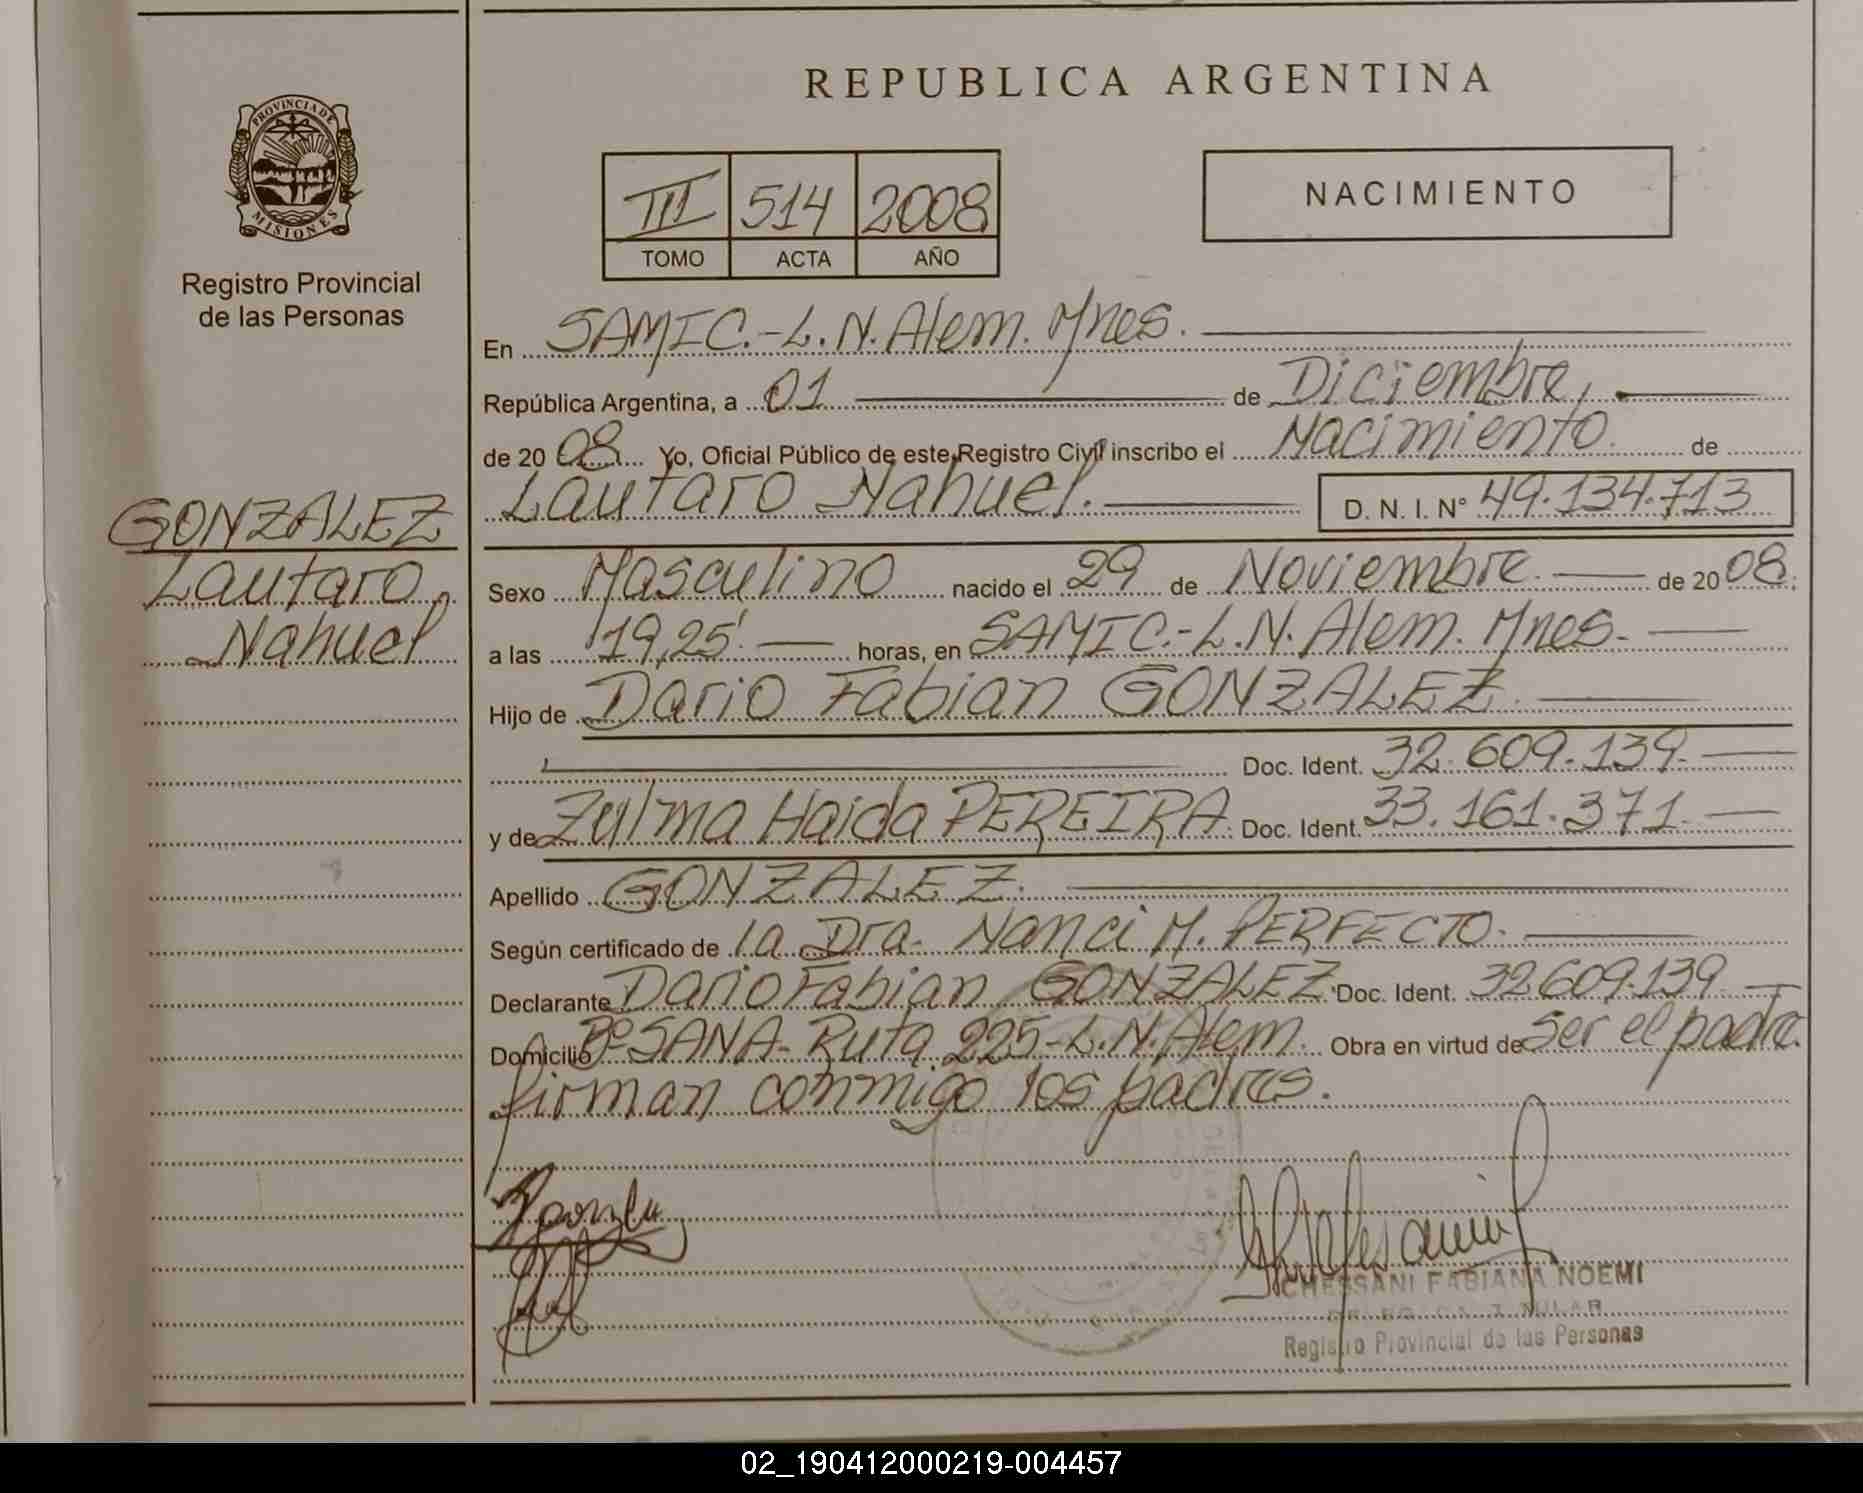 REPUBLICA ARGENTINA
PROVINCIA DE
MISIONES
Registro Provincial
de las Personas
III 514 2008
TOMO ACTA AÑO
NACIMIENTO
En SAMIC.-L.N.Alem. Mnes.
República Argentina, a 01 de Diciembre,
de 2008 Yo, Oficial Público de este Registro Civil inscribo el Nacimiento de
Lautaro Nahuel. D. N. I. Nº 49.134.713
GONZALEZ
Lautaro
Nahuel
Sexo Masculino nacido el 29 de Noviembre. de 2008.
a las 19,25'. horas, en SAMIC.-L.N. Alem. Mnes.
Hijo de Dario Fabian GONZALEZ.
Doc. Ident. 32.609.139.
y de Zulma Haida PEREIRA. Doc. Ident. 33.161.371.
Apellido GONZALEZ.
Según certificado de la Dra. Nanci M. PERFECTO.
Declarante Dario Fabian GONZALEZ. Doc. Ident. 32.609.139
Domicilio Bº SANA- Ruta 225-L.N.Alem. Obra en virtud de ser el padre.
firman conmigo los padres.
FABIANA NOEMI
Registro Provincial de las Personas
02_190412000219-004457